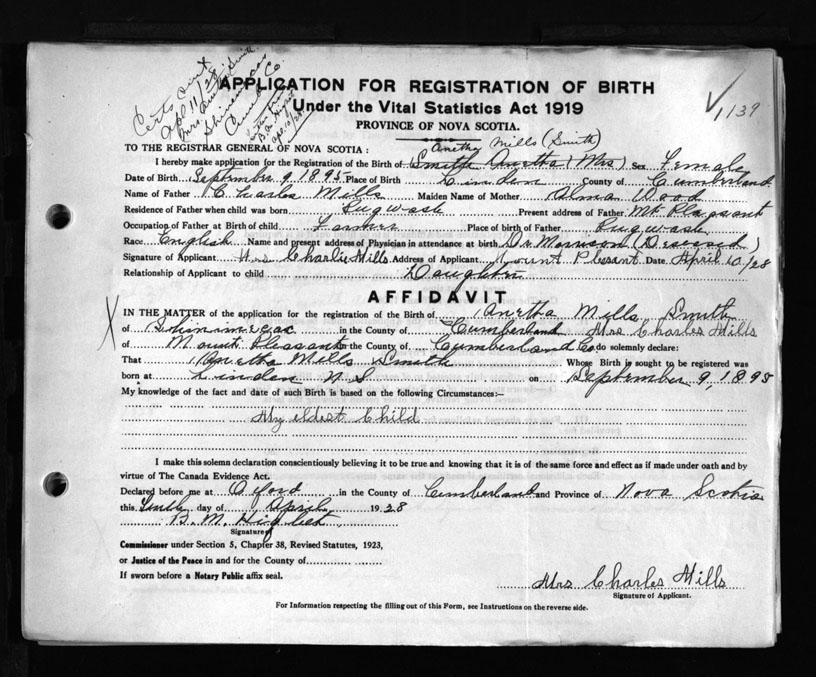 Certs sent
Apl 11/28
Mrs. Smith
Shinimicas
Cumb Co.
APPLICATION FOR REGISTRATION OF BIRTH
1139
Under the Vital Statistics Act 1919
PROVINCE OF NOVA SCOTIA.
TO THE REGISTRAR GENERAL OF NOVA SCOTIA: Anetha Mills (Smith)
I hereby make application for the Registration of the Birth of Smith Anetha (Mrs) Sex Female
Date of Birth September 9 1895 Place of Birth Linden County of Cumberland
Name of Father Charles Mills Maiden Name of Mother Alma Wood
Residence of Father when child was born Pugwash Present address of Father Mt. Pleasant
Occupation of Father at Birth of child Farmer Place of birth of Father Pugwash
Race English Name and present address of Physician in attendance at birth Dr Morrison (Deseased)
Signature of Applicant Mrs Charlie Mills Address of Applicant Mount Plesant Date April 10/28
Relationship of Applicant to child Daughter
AFFIDAVIT
IN THE MATTER of the application for the registration of the Birth of Anetha Mills Smith
of Shinimicas in the County of Cumberland Mrs Charles Mills
of Mount Pleasant in the County of Cumberland Co do solemnly declare:
That Anetha Mills Smith Whose Birth is sought to be registered was
born at Linden N S on September 9, 1895
My knowledge of the fact and date of such Birth is based on the following Circumstances:—
My eldest Child
I make this solemn declaration conscientiously believing it to be true and knowing that it is of the same force and effect as if made under oath and by
virtue of The Canada Evidence Act.
Declared before me at Oxford in the County of Cumberland and Province of Nova Scotia
this Tenth day of April 1928
B. M.
Signature of
Commissioner under Section 5, Chapter 38, Revised Statutes, 1923,
or Justice of the Peace in and for the County of
If sworn before a Notary Public affix seal.
Mrs Charles Mills
Signature of Applicant.
For Information respecting the filling out of this Form, see Instructions on the reverse side.